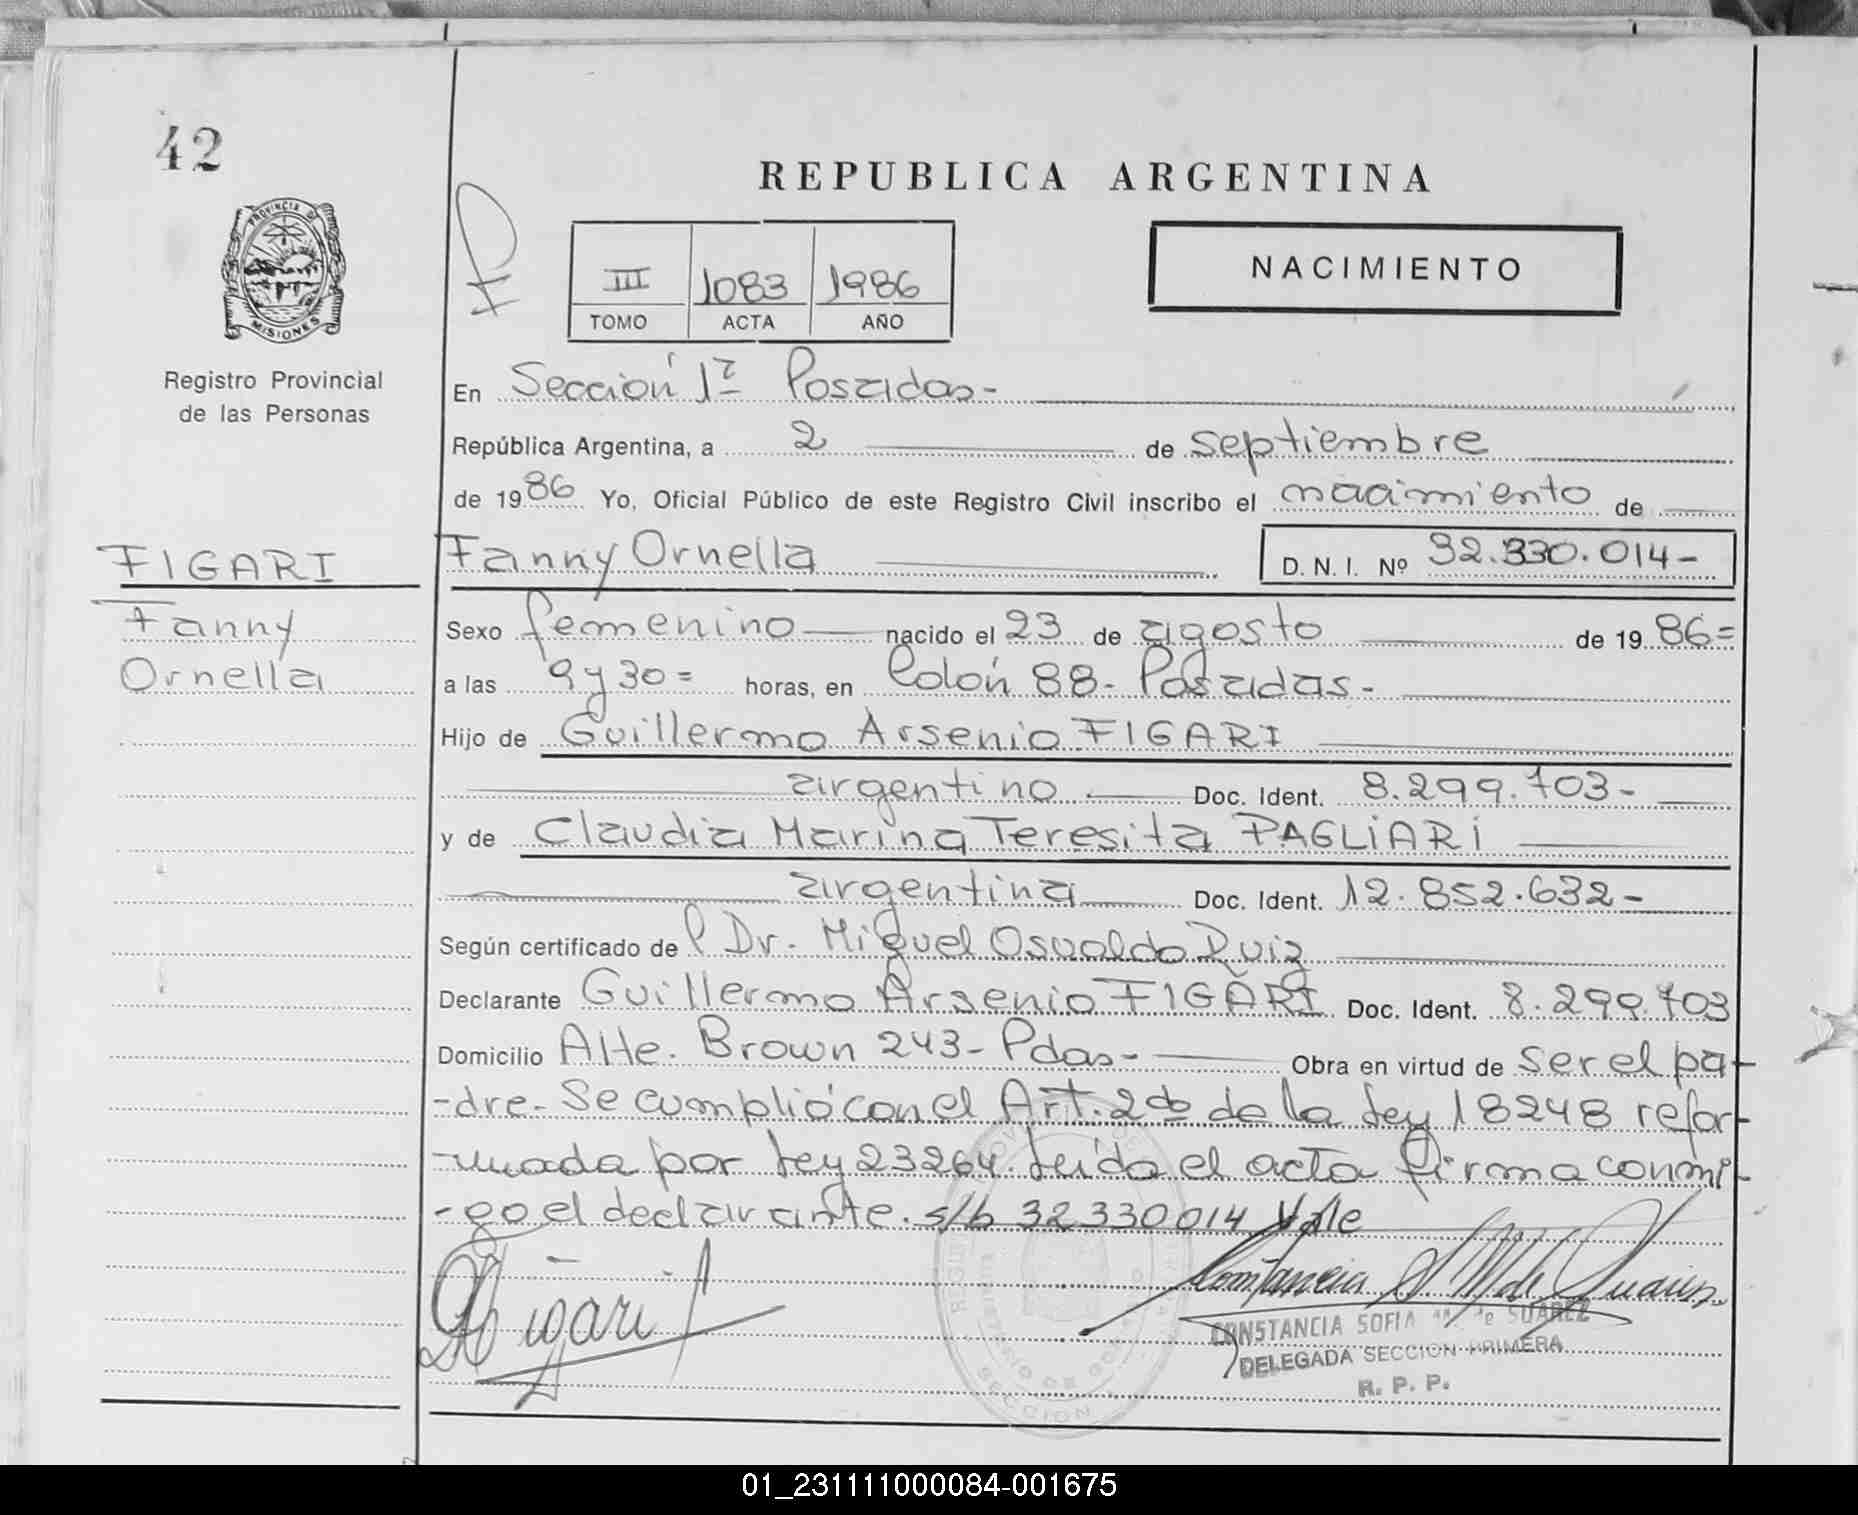 42
REPUBLICA ARGENTINA
PROVINCIA DE
MISIONES
III 1083 1986
TOMO ACTA AÑO
NACIMIENTO
Registro Provincial
de las Personas
En Sección 1ra Posadas-
República Argentina, a 2 de septiembre
de 1986 Yo, Oficial Público de este Registro Civil inscribo el nacimiento de
FIGARI
Fanny Ornella D.N.I. Nº 32.330.014-
Fanny
Ornella
Sexo femenino nacido el 23 de agosto de 1986=
a las 9 y 30= horas, en Colón 88- Posadas-
Hijo de Guillermo Arsenio FIGARI
argentino Doc. Ident. 8.299.703-
y de Claudia Marina Teresita PAGLIARI
argentina Doc. Ident. 12.852.632-
Según certificado de Dr. Miguel Osvaldo Ruiz
Declarante Guillermo Arsenio FIGARI Doc. Ident. 8.299.703
Domicilio Alte. Brown 243- Pdas- Obra en virtud de ser el pa-
-dre- Se cumplió con el Art. 2do de la Ley 18248 refor-
-mada por Ley 23264. Leída el acta firma conmi-
-go el declarante. s/b 32330014 Vale
Figari
Constancia S. M de Suarez
CONSTANCIA SOFIA de SUAREZ
DELEGADA SECCION PRIMERA
R. P. P.
01_231111000084-001675